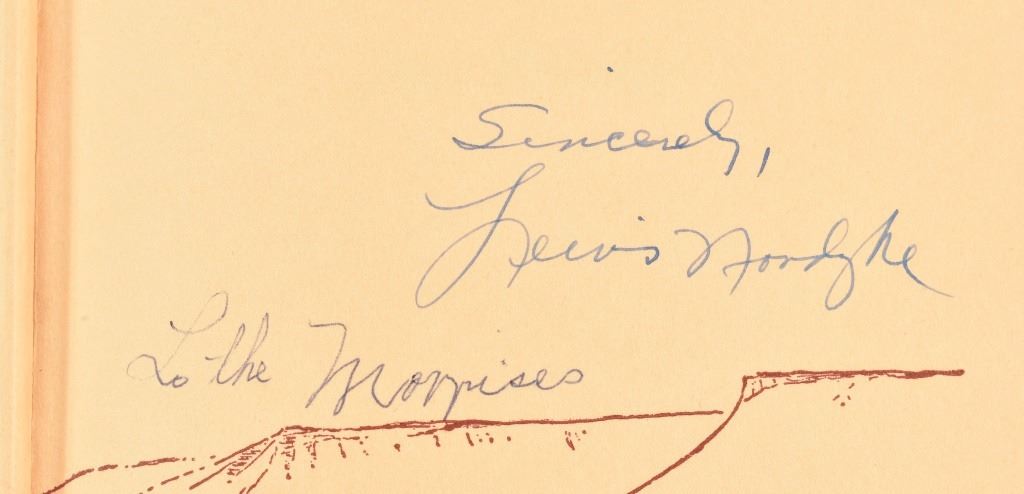 Sincerely,
Lewis Nordyke
To the Morrises